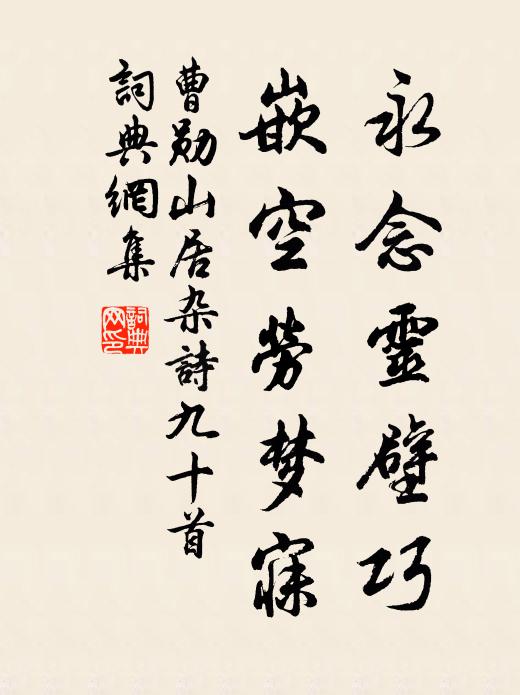 永念靈壁巧
嵌空勞梦寐
曹勛山居杂詩九十首
詞典網集
詞典网印